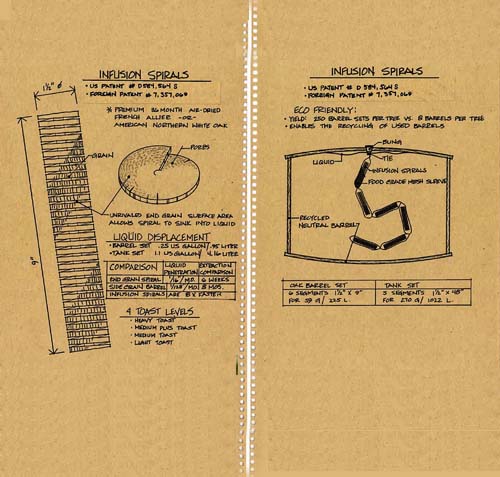 INFUSION SPIRALS
• US PATENT # D 584, 564 S
• FOREIGN PATENT # 7,357,069
1½" ø
* PREMIUM 36 MONTH AIR-DRIED
FRENCH ALLIER -OR-
AMERICAN NORTHERN WHITE OAK
GRAIN
PORES
9"
UNRIVALED END GRAIN SURFACE AREA
ALLOWS SPIRAL TO SINK INTO LIQUID
LIQUID DISPLACEMENT
• BARREL SET .25 US GALLON / .95 LITER
• TANK SET 1.1 US GALLON / 4.16 LITER
COMPARISON LIQUID PENETRATION EXTRACTION COMPARISON
END GRAIN SPIRAL 6 WEEKS
SIDE GRAIN BARREL 8 MOS.
INFUSION SPIRALS ARE 8 X FASTER
4 TOAST LEVELS
• HEAVY TOAST
• MEDIUM PLUS TOAST
• MEDIUM TOAST
• LIGHT TOAST
INFUSION SPIRALS
• US PATENT # D 584, 564 S
• FOREIGN PATENT # 7,357,069
ECO FRIENDLY:
• YIELD: 250 BARREL SETS PER TREE VS. 8 BARRELS PER TREE
• ENABLES THE RECYCLING OF USED BARRELS
BUNG
LIQUID
TIE
INFUSION SPIRALS
FOOD GRADE MESH SLEEVE
RECYCLED
NEUTRAL BARREL
OAK BARREL SET
6 SEGMENTS 1½" X 9"
FOR 59 G / 225 L.
TANK SET
3 SEGMENTS 1½" X 48"
FOR 270 G / 1022 L.